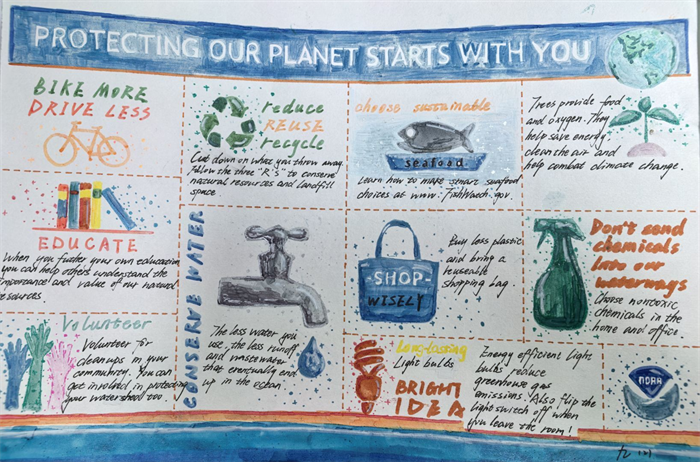 PROTECTING OUR PLANET STARTS WITH YOU
BIKE MORE
DRIVE LESS
reduce
REUSE
recycle
Cut down on what you throw away.
Follow the three "R's" to conserve
natural resources and landfill
space
choose sustainable
seafood
Learn how to make smart seafood
choices at www.FishWatch.gov.
Trees provide food
and oxygen. They
help save energy,
clean the air and
help combat climate change.
EDUCATE
When you further your own education,
you can help others understand the
importance and value of our natural
resources.
CONSERVE WATER
The less water you
use, the less runoff
and wastewater
that eventually end
up in the ocean.
-SHOP-
WISELY
Buy less plastic
and bring a
reuseable
shopping bag.
Don't send
chemicals
into our
waterways
Choose nontoxic
chemicals in the
home and office.
Volunteer
Volunteer for
cleanups in your
community. You can
get involved in protecting
your watershed too.
Long-lasting
Light bulbs
BRIGHT
IDEA
Energy efficient light
bulbs reduce
greenhouse gas
emissions. Also flip the
light switch off when
you leave the room!
NOAA